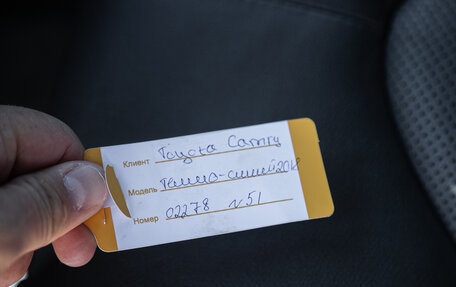 Клиент Toyota Camry
Модель Темно-синий 2018
Номер 02278 N51